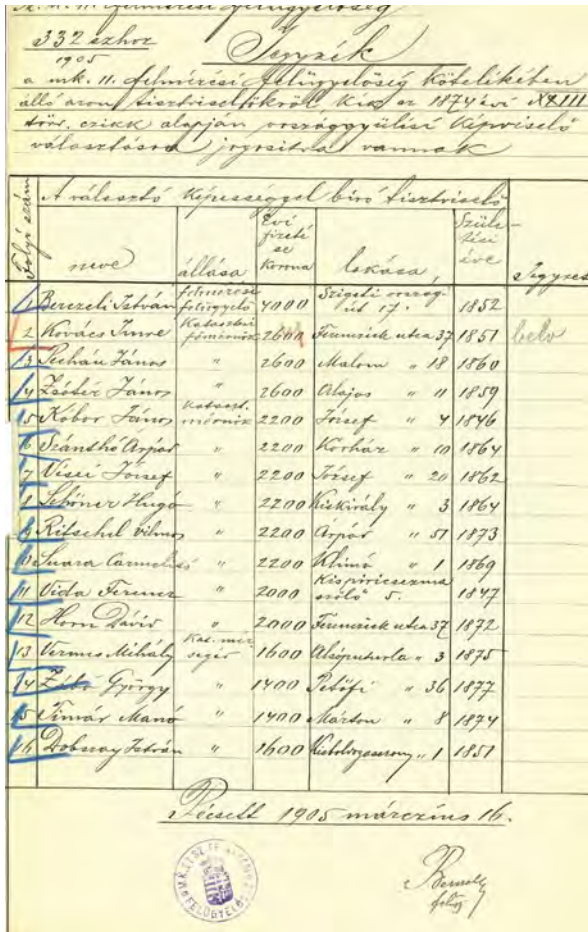 332 szhoz
1905
Jegyzék
a mk. 11. felmérési felügyelőség kötelékében
álló azon tisztviselőkről kik az 1874 évi XXXIII
törv. czikk alapján országgyűlési képviselő
választásra jogositva vannak
Folyó szám
A választó képességgel biró tisztviselő
neve
állása
Évi fizetése Korona
lakása,
Születési éve
Jegyzet
1 Berezeli István felmérési felügyelő 4000 Szigeti országút 17. 1852
2 Kovács Imre Kataszteri főmérnök 2600 Ferencziek utca 37 1851
3 Pechán János " 2600 Malom " 18 1860
4 Zsótér János " 2600 Alajos " 11 1859
5 Kóbor János Kataszt. mérnök 2200 József " 4 1846
6 Szánthó Árpád " 2200 Kórház " 10 1864
7 Vései József " 2200 József " 20 1862
8 Schöner Hugó " 2200 Kiskirály " 3 1864
9 Ritschel Vilmos " 2200 Árpád " 51 1873
10 " 2200 Klimó " 1 1869
11 Vida Ferencz " 2000 szőlő 5. 1847
12 Horn Dávid " 2000 Ferencziek utca 37 1872
13 Vermes Mihály 1600 " 3 1875
14 György " 1400 Petőfi " 36 1877
15 Timár Manó " 1400 Márton " 8 1874
16 Dobszay István " 1600 " 1 1851
Pécsett 1905 márczius 16.